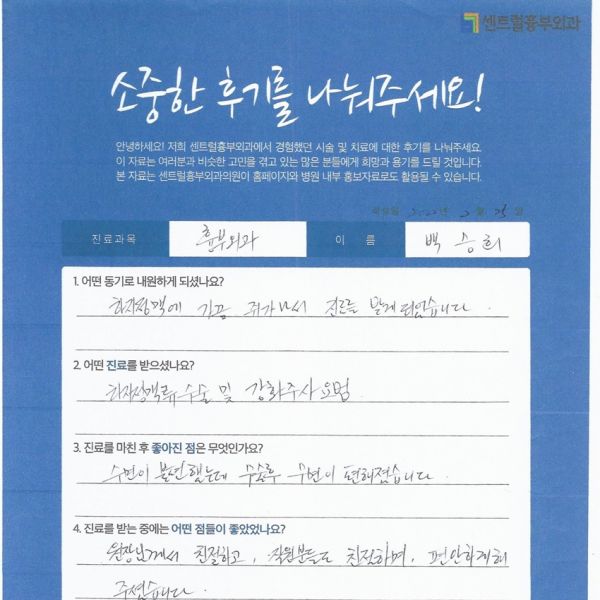 센트럴흉부외과
소중한 후기를 나눠주세요!
안녕하세요! 저희 센트럴흉부외과에서 경험했던 시술 및 치료에 대한 후기를 나눠주세요.
이 자료는 여러분과 비슷한 고민을 겪고 있는 많은 분들에게 희망과 용기를 드릴 것입니다.
본 자료는 센트럴흉부외과의원이 홈페이지와 병원 내부 홍보자료로도 활용될 수 있습니다.
작성일 년 2월 25일
진료과목 흉부외과 이 름 백승희
1. 어떤 동기로 내원하게 되셨나요?
하지정맥에 가끔 쥐가나서 진료를 받게되었습니다.
2. 어떤 진료를 받으셨나요?
하지정맥류 수술 및 강화주사요법
3. 진료를 마친 후 좋아진 점은 무엇인가요?
수면이 불편했는데 수술후 수면이 편해졌습니다.
4. 진료를 받는 중에는 어떤 점들이 좋았었나요?
원장님께서 친절하고, 직원분들도 친절하며, 편안하게해
주셨습니다.